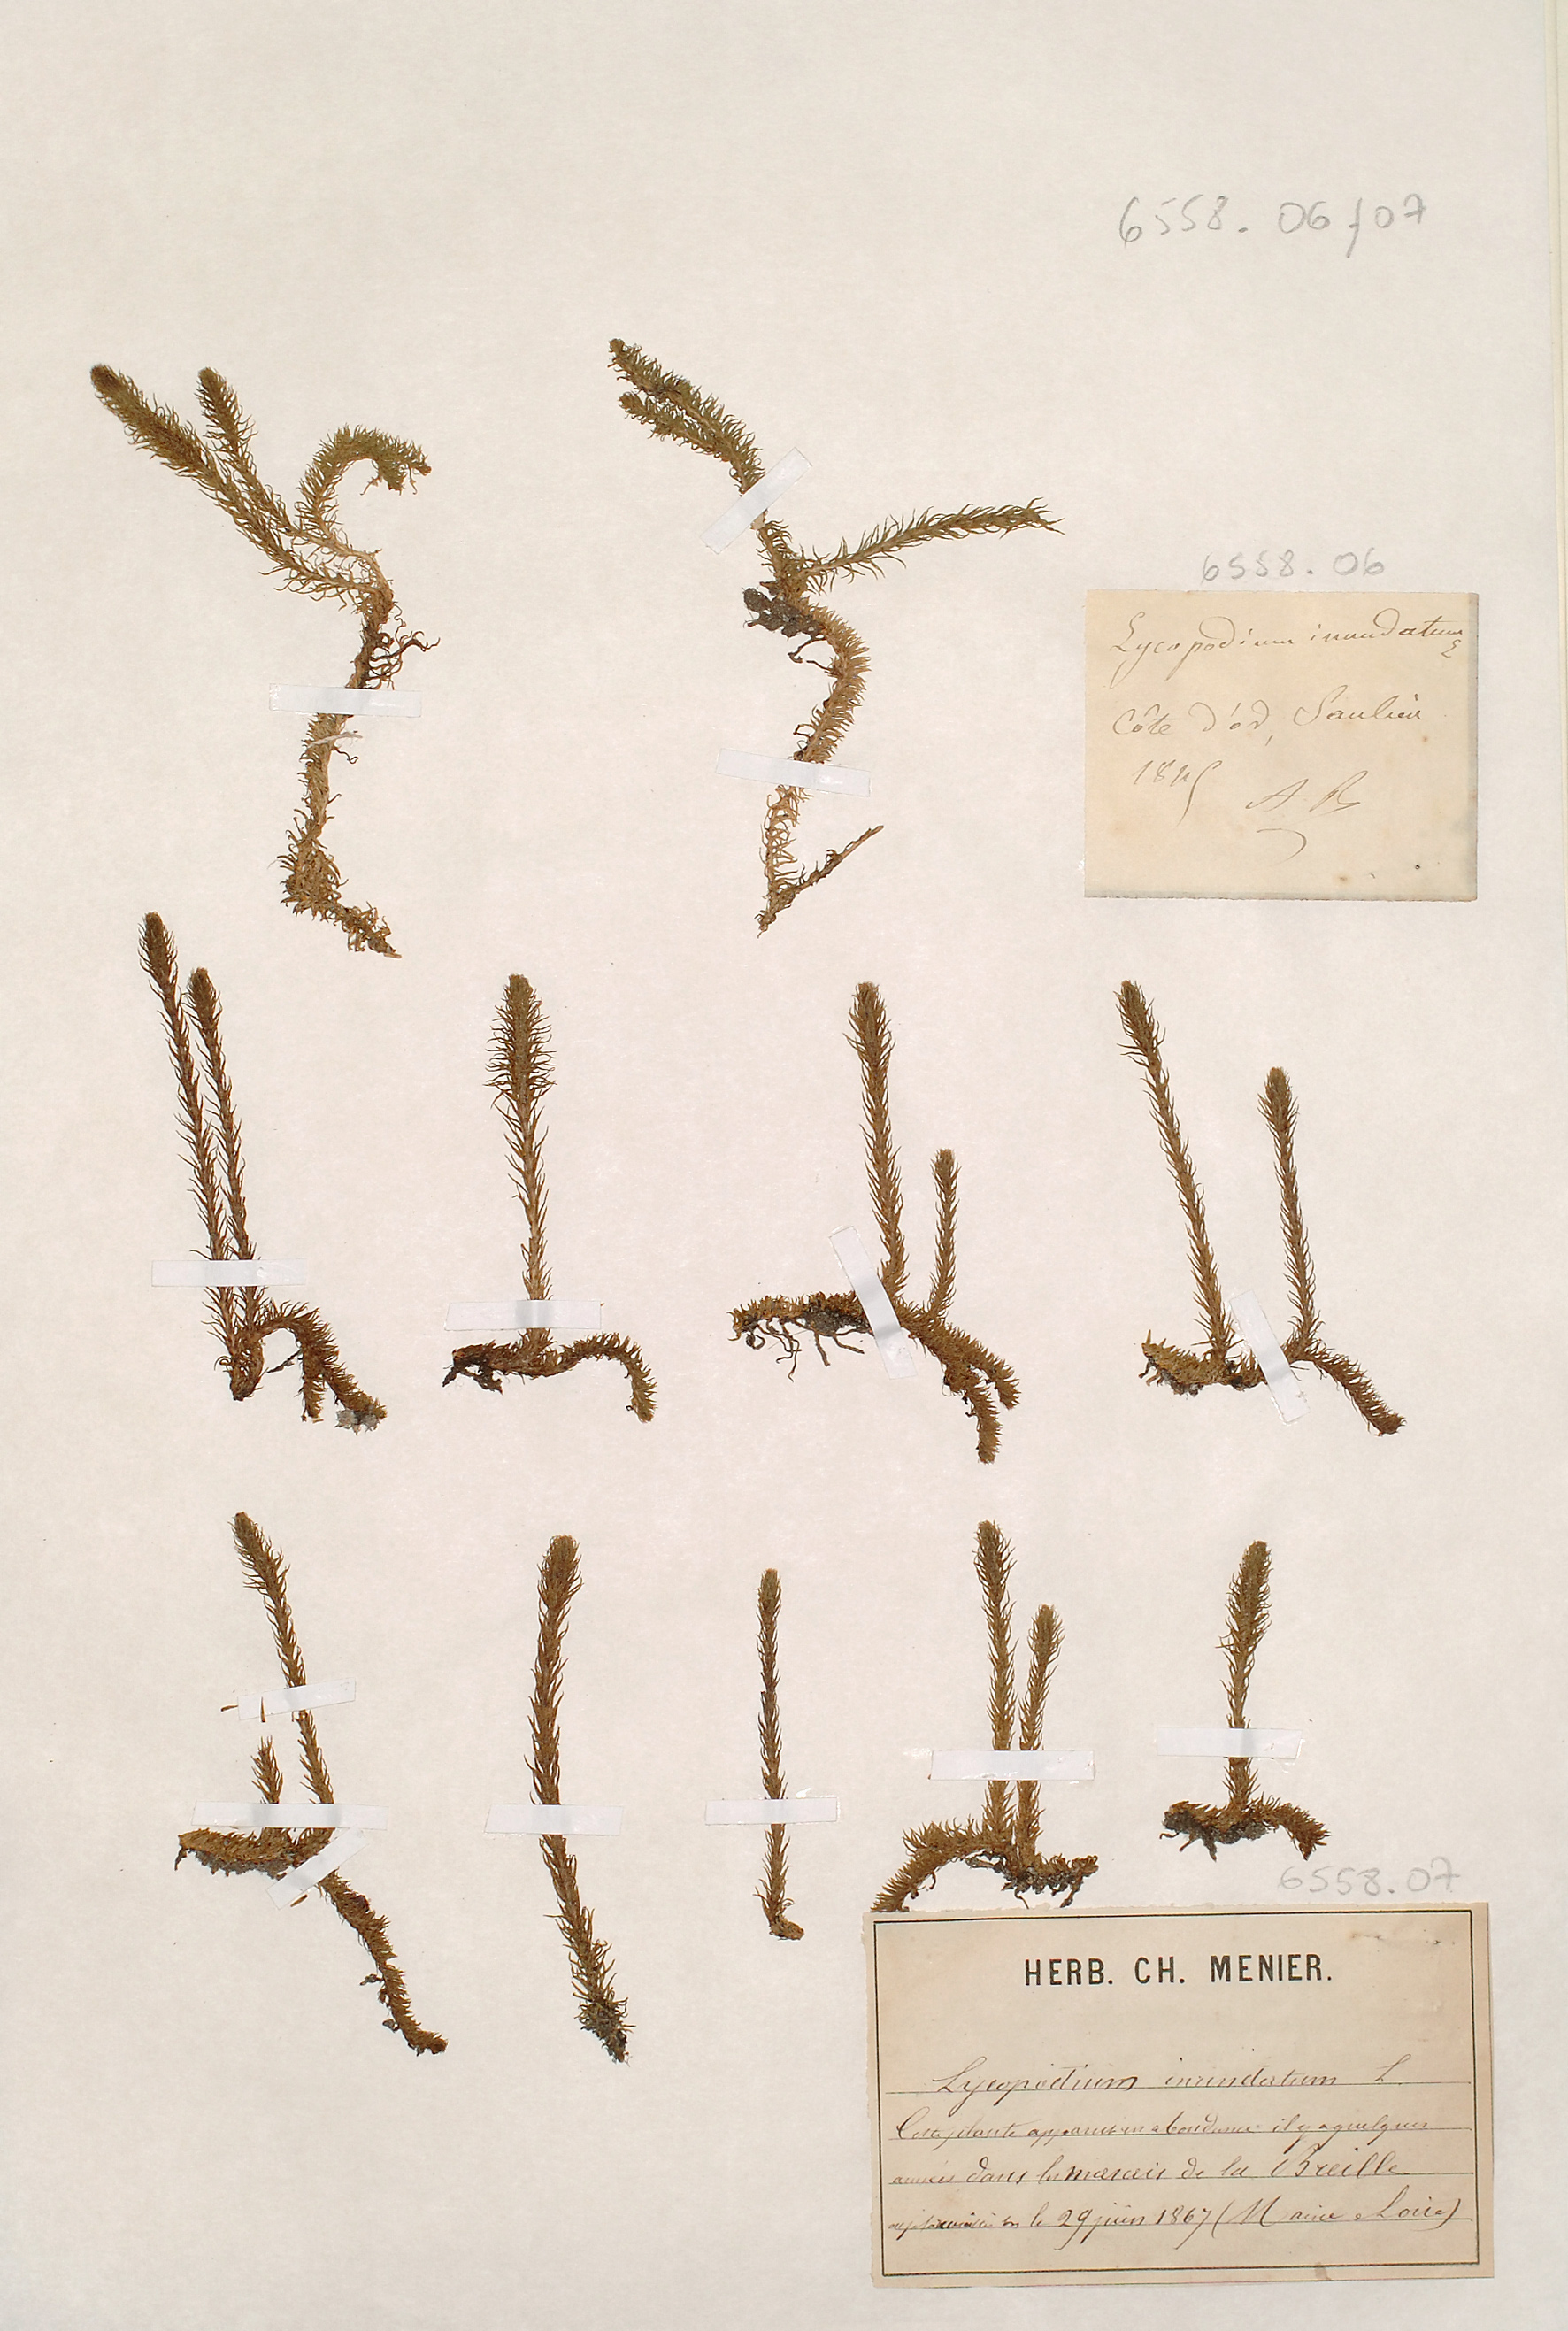 6558. 06/07
6558. 06
Lycopodium inundatum
L
Côte d'or, Saulieu
18
A B
6558.07
HERB. CH. MENIER.
Lycopodium inundatum L.
Cette plante en abondance il y a quelques
années dans les marais de la Breille
le 29 juin 1867 (Maine & Loire)